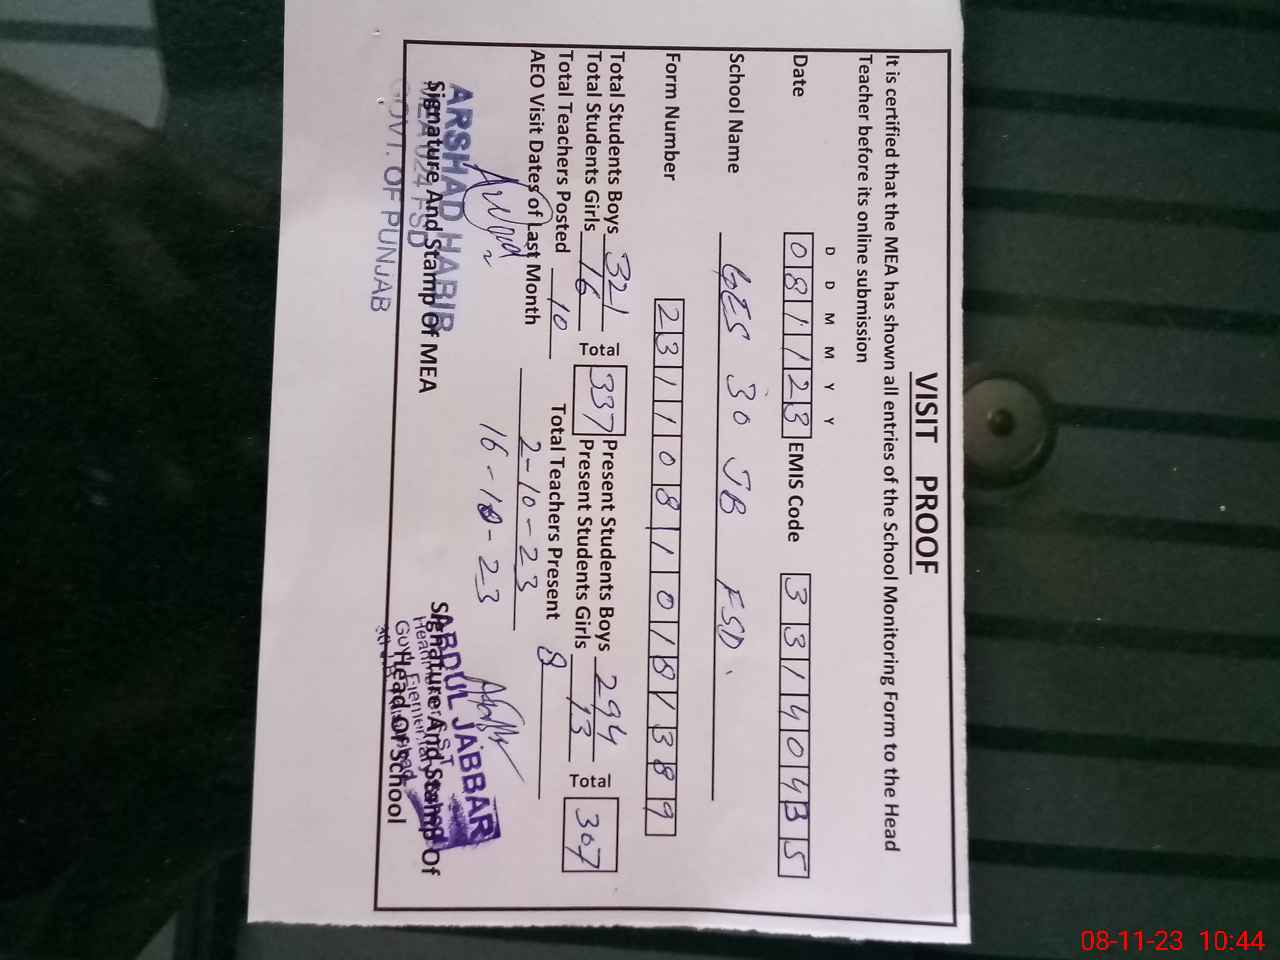 VISIT PROOF
It is certified that the MEA has shown all entries of the School Monitoring Form to the Head
Teacher before its online submission
D D M M Y Y
Date 081123 EMIS Code 33140435
School Name GES 30 JB FSD.
Form Number
Total Students Boys 321 Total 337 Present Students Boys 294 Total 307
Total Students Girls 16 Present Students Girls 13
Total Teachers Posted 10 Total Teachers Present 8
AEO Visit Dates of Last Month 2-10-23
16-10-23
ARSHAD HABIB
Signature And Stamp Of MEA
GOVT. OF PUNJAB
ABDUL JABBAR
Signature And Stamp Of
Head Of School
08-11-23 10:44